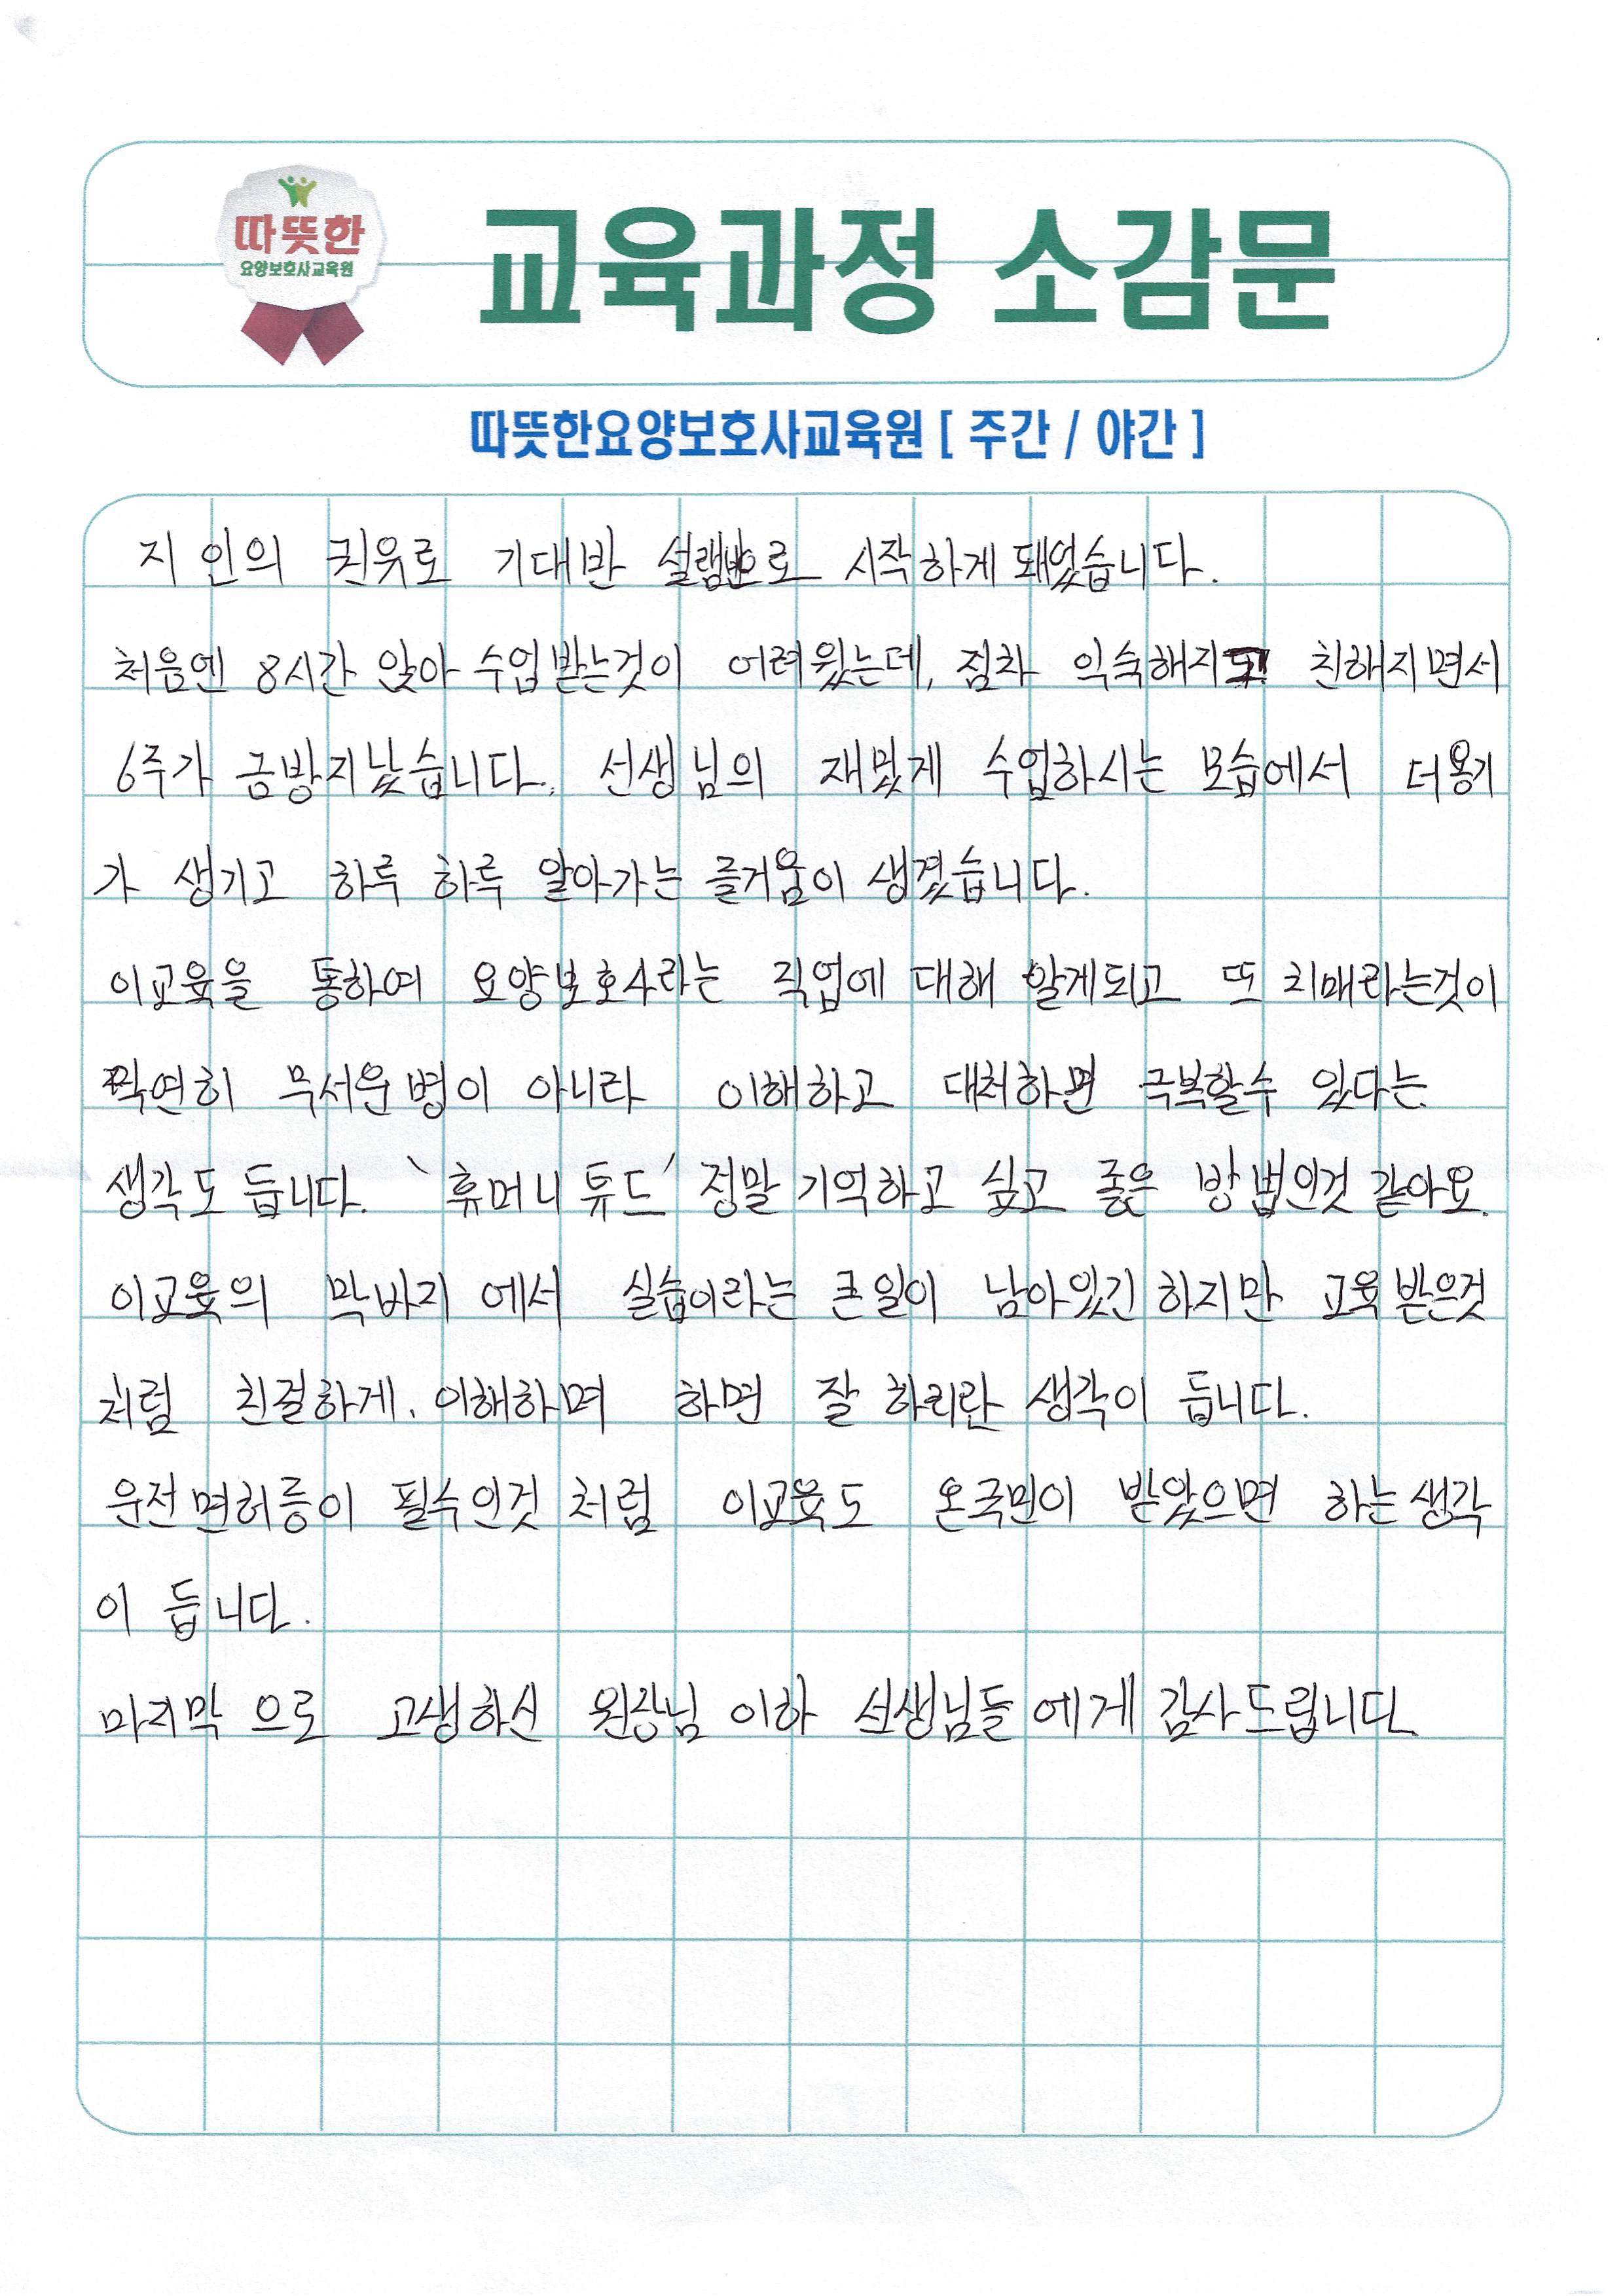 따뜻한
요양보호사교육원
교육과정 소감문
따뜻한요양보호사교육원 [ 주간 / 야간 ]
지인의 권유로 기대반 설렘반으로 시작하게 돼었습니다.
처음엔 8시간 앉아 수업받는것이 어려웠는데, 점차 익숙해지고 친해지면서
6주가 금방지났습니다. 선생님의 재밌게 수업하시는 모습에서 더 용기
가 생기고 하루 하루 알아가는 즐거움이 생겼습니다.
이교육을 통하여 요양보호사라는 직업에 대해 알게되고 또 치매라는것이
막연히 무서운 병이 아니라 이해하고 대처하면 극복할수 있다는
생각도 듭니다. '휴머니튜드' 정말 기억하고 싶고 좋은 방법인것 같아요.
이교육의 막바지 에서 실습이라는 큰일이 남아있긴 하지만 교육 받은것
처럼 친절하게. 이해하며 하면 잘 하리란 생각이 듭니다.
운전면허증이 필수인것 처럼 이교육도 온국민이 받았으면 하는 생각
이 듭니다.
마지막 으로 고생하신 원장님 이하 선생님들 에게 감사드립니다.